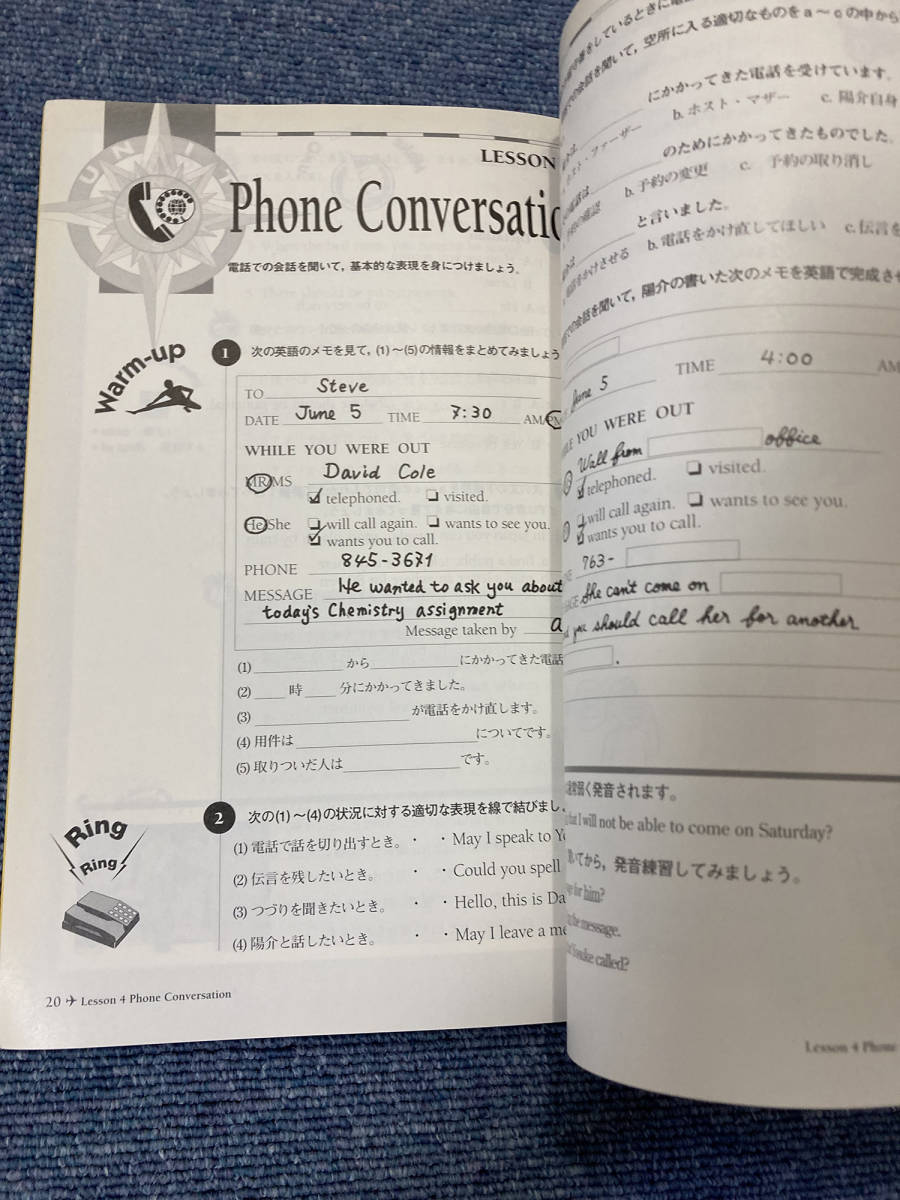 UNIT
LESSON
Phone Conversatio
電話での会話を聞いて，基本的な表現を身につけましょう。
Warm-up
1 次の英語のメモを見て，(1)～(5)の情報をまとめてみましょう
TO Steve
DATE June 5 TIME 7:30 AM
WHILE YOU WERE OUT
MR/MS David Cole
telephoned. visited.
He/She will call again. wants to see you.
wants you to call.
PHONE 845-3671
MESSAGE He wanted to ask you about
today's Chemistry assignment
Message taken by a
(1) から にかかってきた電話
(2) 時 分にかかってきました。
(3) が電話をかけ直します。
(4) 用件は についてです。
(5) 取りついだ人は です。
Ring
Ring
2 次の(1)～(4)の状況に対する適切な表現を線で結びまし
(1) 電話で話を切り出すとき。・ ・May I speak to Yo
(2) 伝言を残したいとき。 ・ ・Could you spell
(3) つづりを聞きたいとき。 ・ ・Hello, this is Da
(4) 陽介と話したいとき。 ・ ・May I leave a me
20 ✈ Lesson 4 Phone Conversation
をしているときに電
での会話を聞いて，空所に入る適切なものをa～cの中から
にかかってきた電話を受けています。
ホスト・ファーザー b. ホスト・マザー c. 陽介自身
のためにかかってきたものでした。
予約の確認 b. 予約の変更 c. 予約の取り消し
と言いました。
電話をかけさせる b. 電話をかけ直してほしい c. 伝言を
での会話を聞いて，陽介の書いた次のメモを英語で完成させ
June 5 TIME 4:00 AM
WHILE YOU WERE OUT
Wall from office
telephoned. visited.
will call again. wants to see you.
wants you to call.
763-
She can't come on
you should call her for another
.
強く発音されます。
that I will not be able to come on Saturday?
いてから，発音練習してみましょう。
for him?
the message.
called?
Lesson 4 Phone